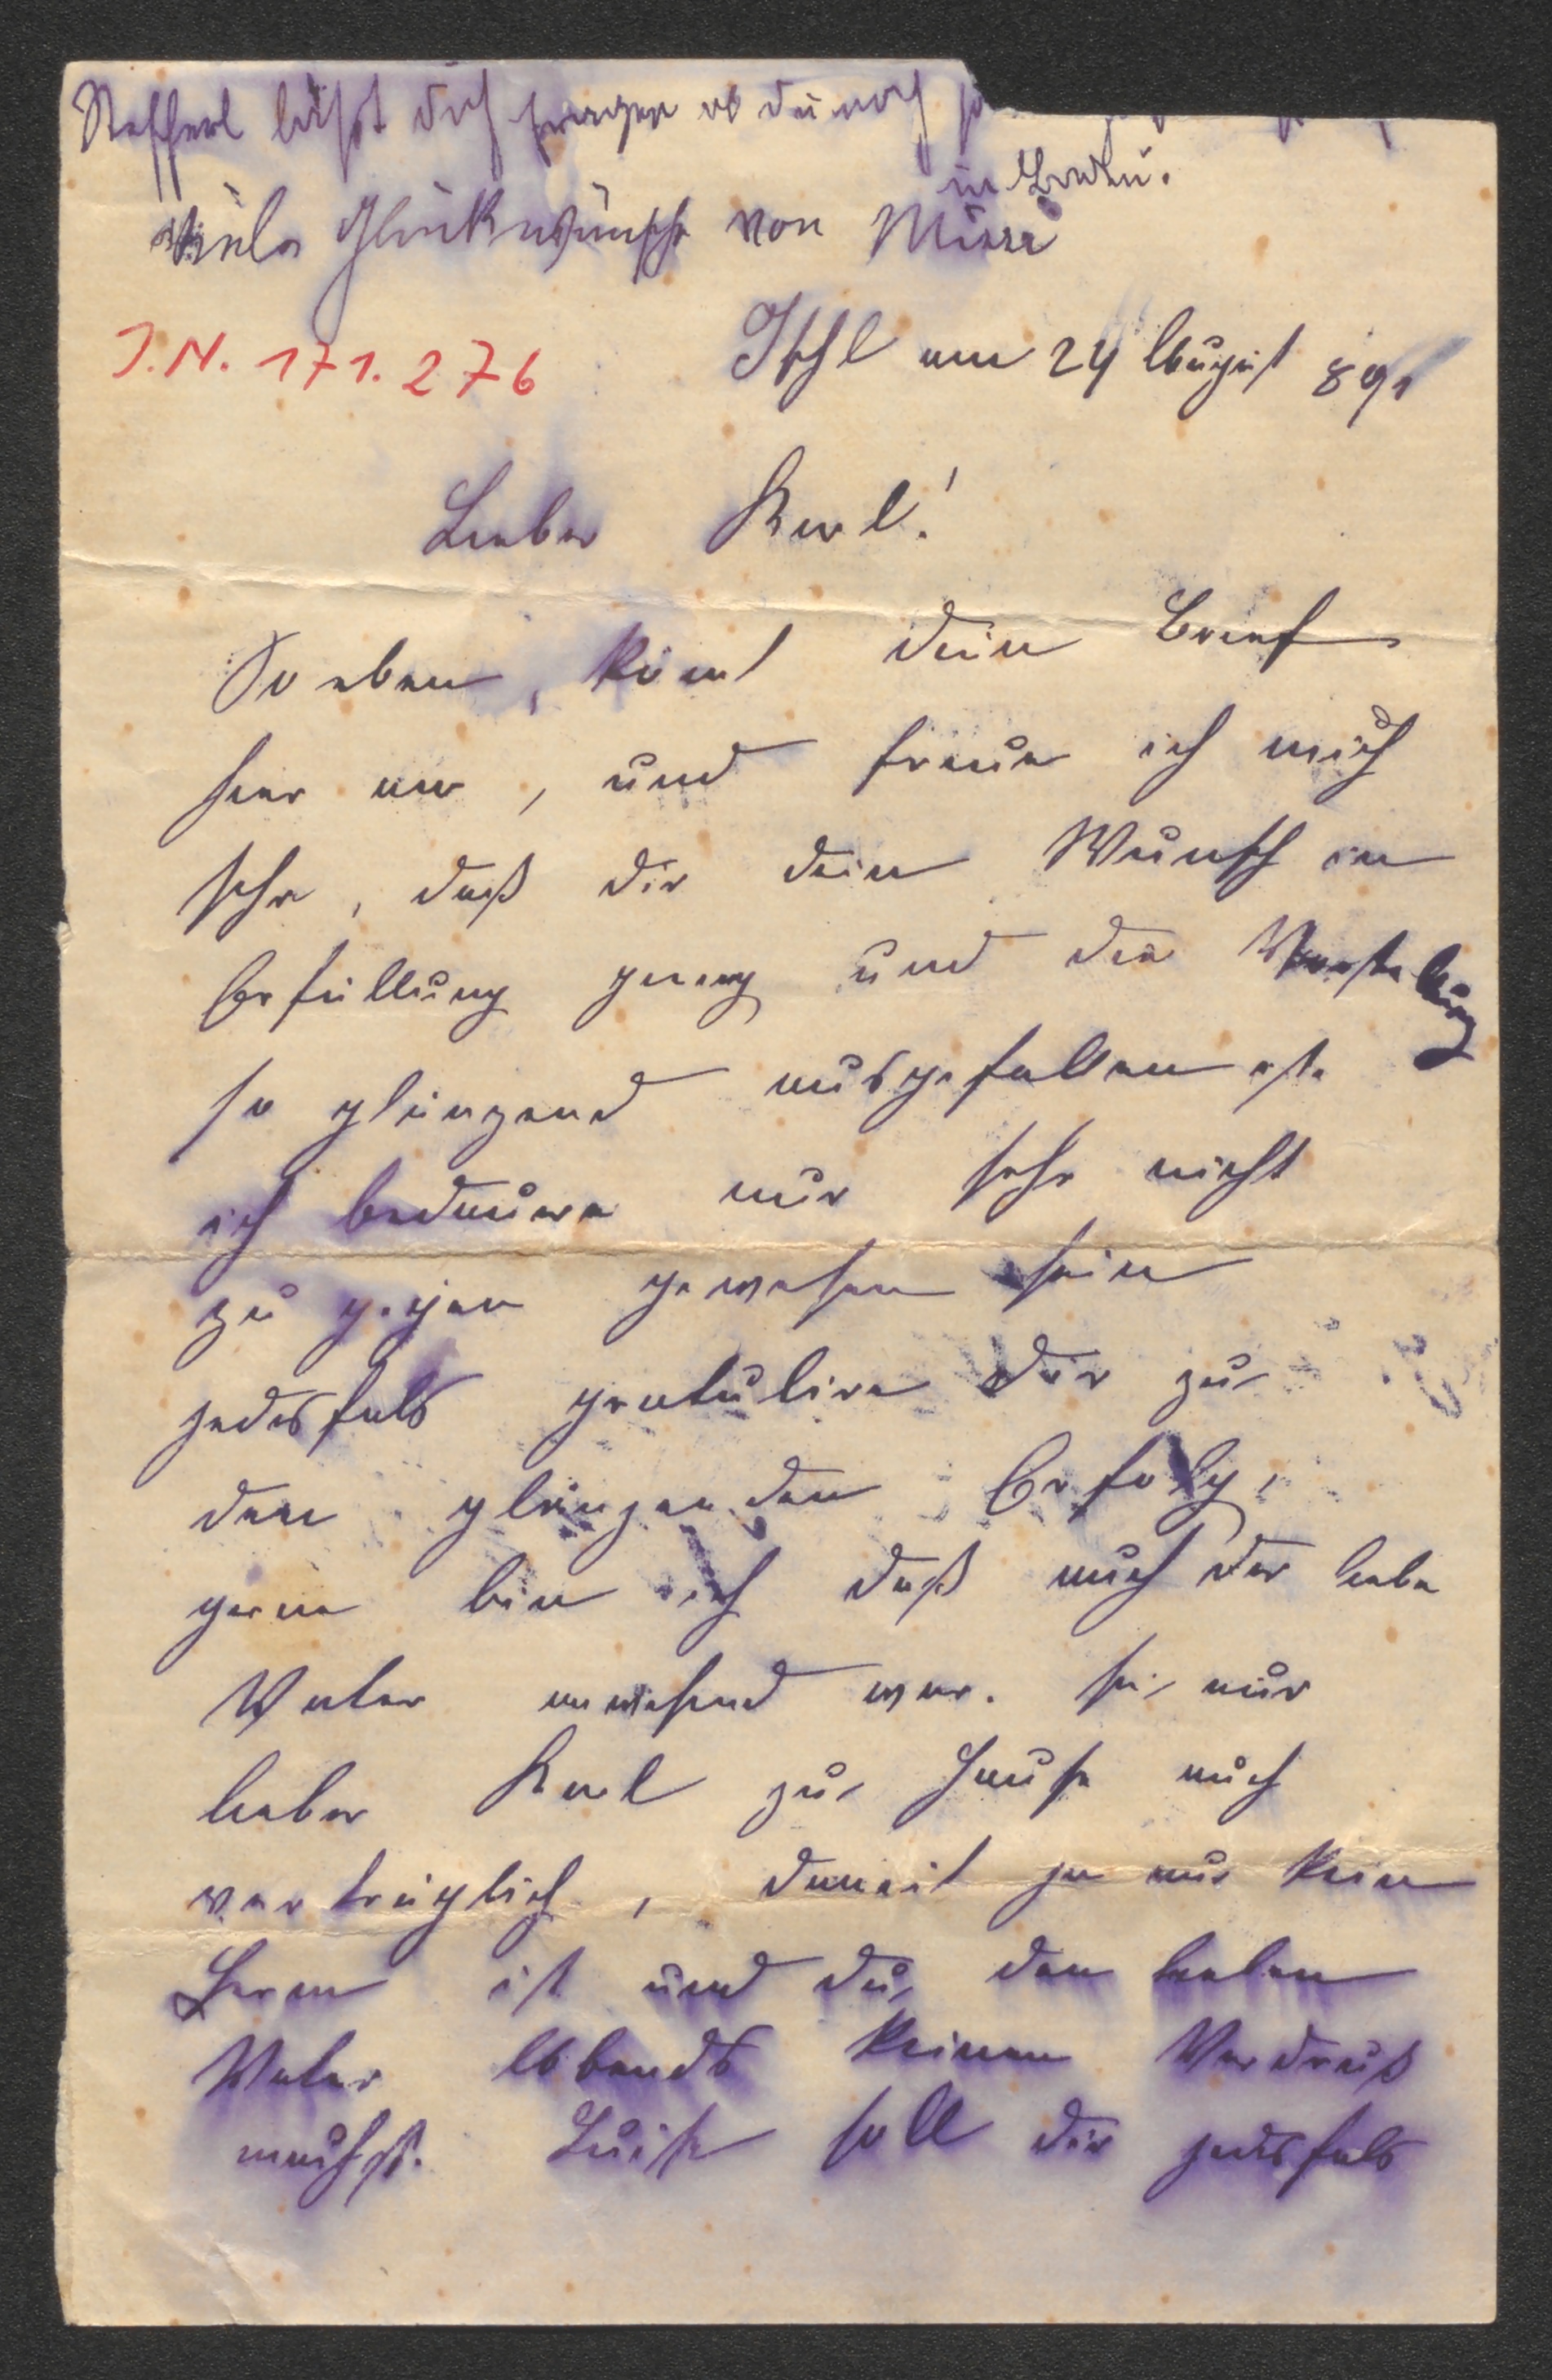 Stefferl läßt dich fragen ob du noch so
in Baden.
Viele Glückwünsche von Mizzi
J.N. 171.276
Ischl am 24 August 891
Lieber Karl!
So eben, kömt dein Brief
hier an, und freue ich mich
sehr, daß dir dein Wunsch in
Erfüllung gieng und die Vorstellung
so glänzend ausgefallen ist.
ich bedauere nur sehr nicht
zu gegen gewesen sein
jedesfals gratulire dir zu
dem glänzenden Erfolg,
gerne bin ich daß auch der liebe
Vater anwesend war. sei nur
lieber Karl zu Hause auch
verträglich, damit ja nur kein
Lerm ist und du, den lieben
Vater Abbends keinen Verdruß
machst. Luise soll dir jedesfals